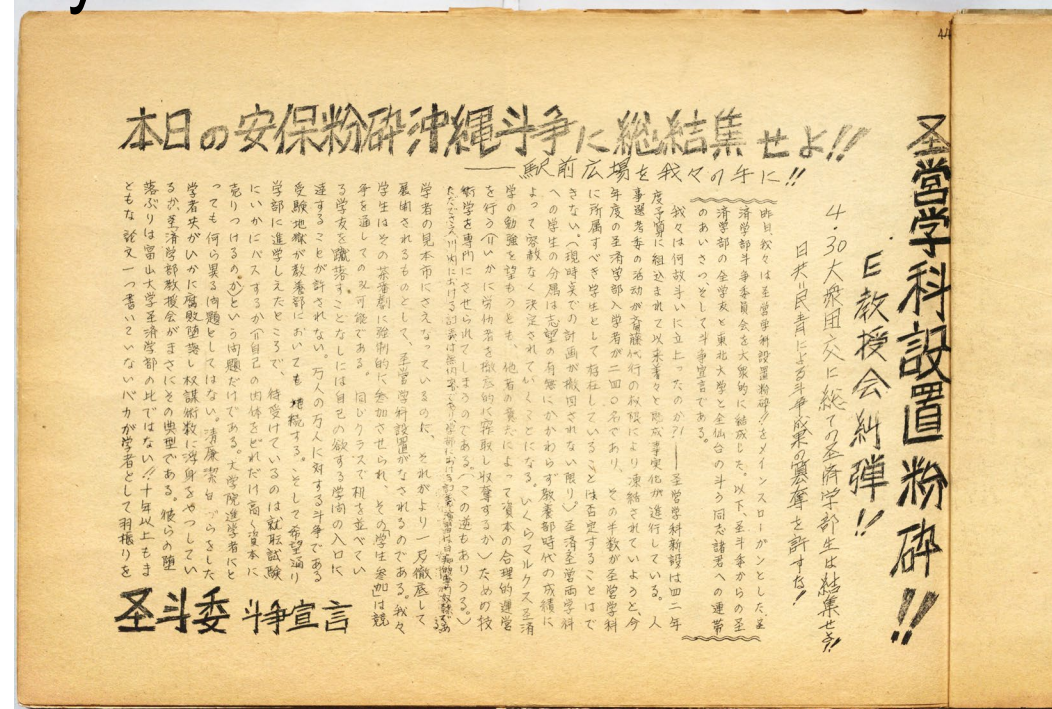 44
圣営学科設置粉砕!!
E教授会糾弾!!
4.30大衆団交に総ての圣済学部生は結集せう!!
日共=民青による斗争成果の簒奪を許すな!
本日の安保粉砕沖縄斗争に総結集せよ!!
――駅前広場を我々の手に!!
昨日、我々は圣営学科設置粉砕!をメインスローガンとした、圣
済学部斗争委員会を大衆的に結成した。以下、圣斗委からの圣
済学部の全学友と東北大学と全仙台の斗う同志諸君への連帯
のあいさつそして斗争宣言である。
我々は何故斗いに立上ったのか?――圣営学科新設は四二年
度予算に組込まれて以来着々と既成事実化が進行している。人
事選考委の活動が斎藤代行の権限により凍結されていようと、今
年度の圣済学部入学者が二四〇名であり、その半数が圣営学科
に所属すべき学生として存在していることは否定することはで
きない。(現時点での計画が撤回されない限り)圣済圣営両学科
への学生の分属は志望の有無にかかわらず教養部時代の成績に
よって容赦なく決定されていくことになる。いくらマルクス圣済
学の勉強を望もうとも、他者の意志によって資本の合理的運営
を行う(いかに労働者を徹底的に搾取し収奪するか)ための技
術学を専門にさせられてしまうのである。(この逆もありうる。)
学者の見本市にさえなっているのに、それがより一層徹底して
展開されるものとして、圣営学科設置がなされるのである。我々
学生はその茶番劇に強制的に参加させられ、その学生参加は競
争を通してのみ可能である。同じクラスで机を並べてい
る学友を蹴落すことなしには自己の欲する学問の入口に
達することが許されない。万人の万人に対する斗争である
受験地獄が教養部においても持続する。そして希望通り
学部に進学しえたところで、待受けているのは就職試験
にいかにパスするか(自己の肉体をどれだけ高く資本に
売りつけるのか)という問題だけである。大学院進学者にと
っても何ら異る問題としてはない。清廉潔白づらをした
学者共がいかに腐敗堕落し権謀術数に浮身をやつしてい
るか、圣済学部教授会がまさにその典型である。彼らの堕
落ぶりは富山大学圣済学部の比ではない!!十年以上もま
ともな論文一つ書いていないバカが学者として羽振りを
圣斗委 斗争宣言